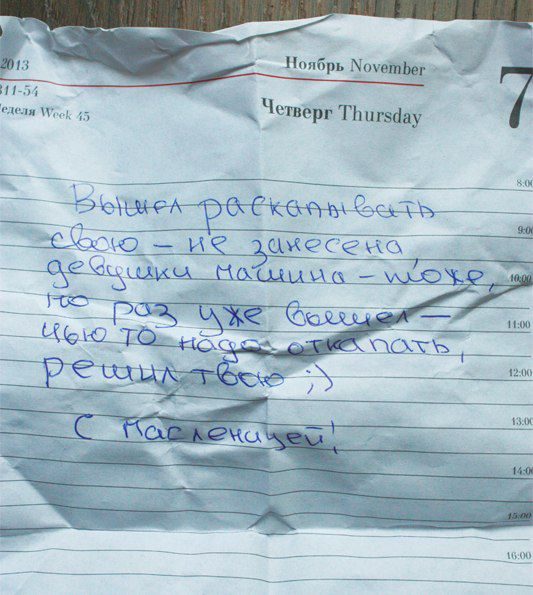 2013
Ноябрь November
311-54
Неделя Week 45
Четверг Thursday
7
8:00
Вышел раскапывать
9:00
свою – не занесена,
девушки машина – тоже,
10:00
но раз уже вышел –
11:00
чью то надо откапать,
12:00
решил твою ;)
13:00
С Масленицей!
14:00
15:00
16:00